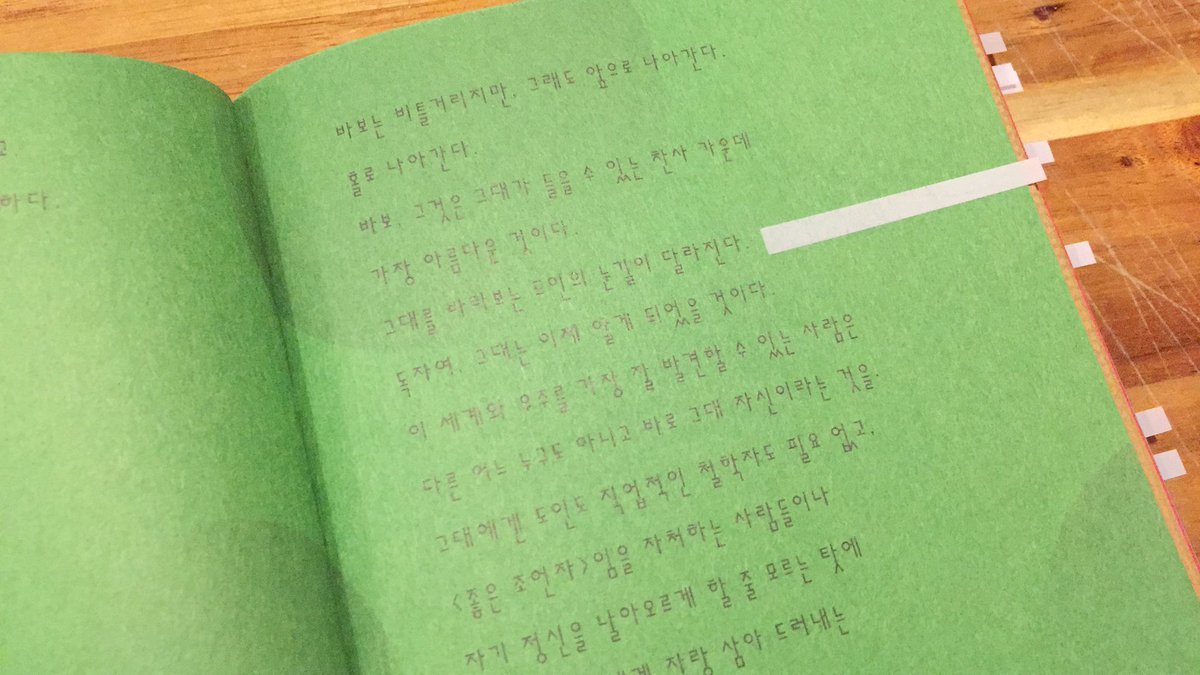 고
하다
바보는 비틀거리지만, 그래도 앞으로 나아간다.
홀로 나아간다.
바보, 그것은 그대가 들을 수 있는 찬사 가운데
가장 아름다운 것이다.
그대를 바라보는 도인의 눈길이 달라진다.
독자여, 그대는 이제 알게 되었을 것이다.
이 세계와 우주를 가장 잘 발견할 수 있는 사람은
다른 어느 누구도 아니고 바로 그대 자신이라는 것을.
그대에겐 도인도 직업적인 철학자도 필요 없고,
<좋은 조언자>임을 자처하는 사람들이나
자기 정신을 날아오르게 할 줄 모르는 탓에
자랑 삼아 드러내는